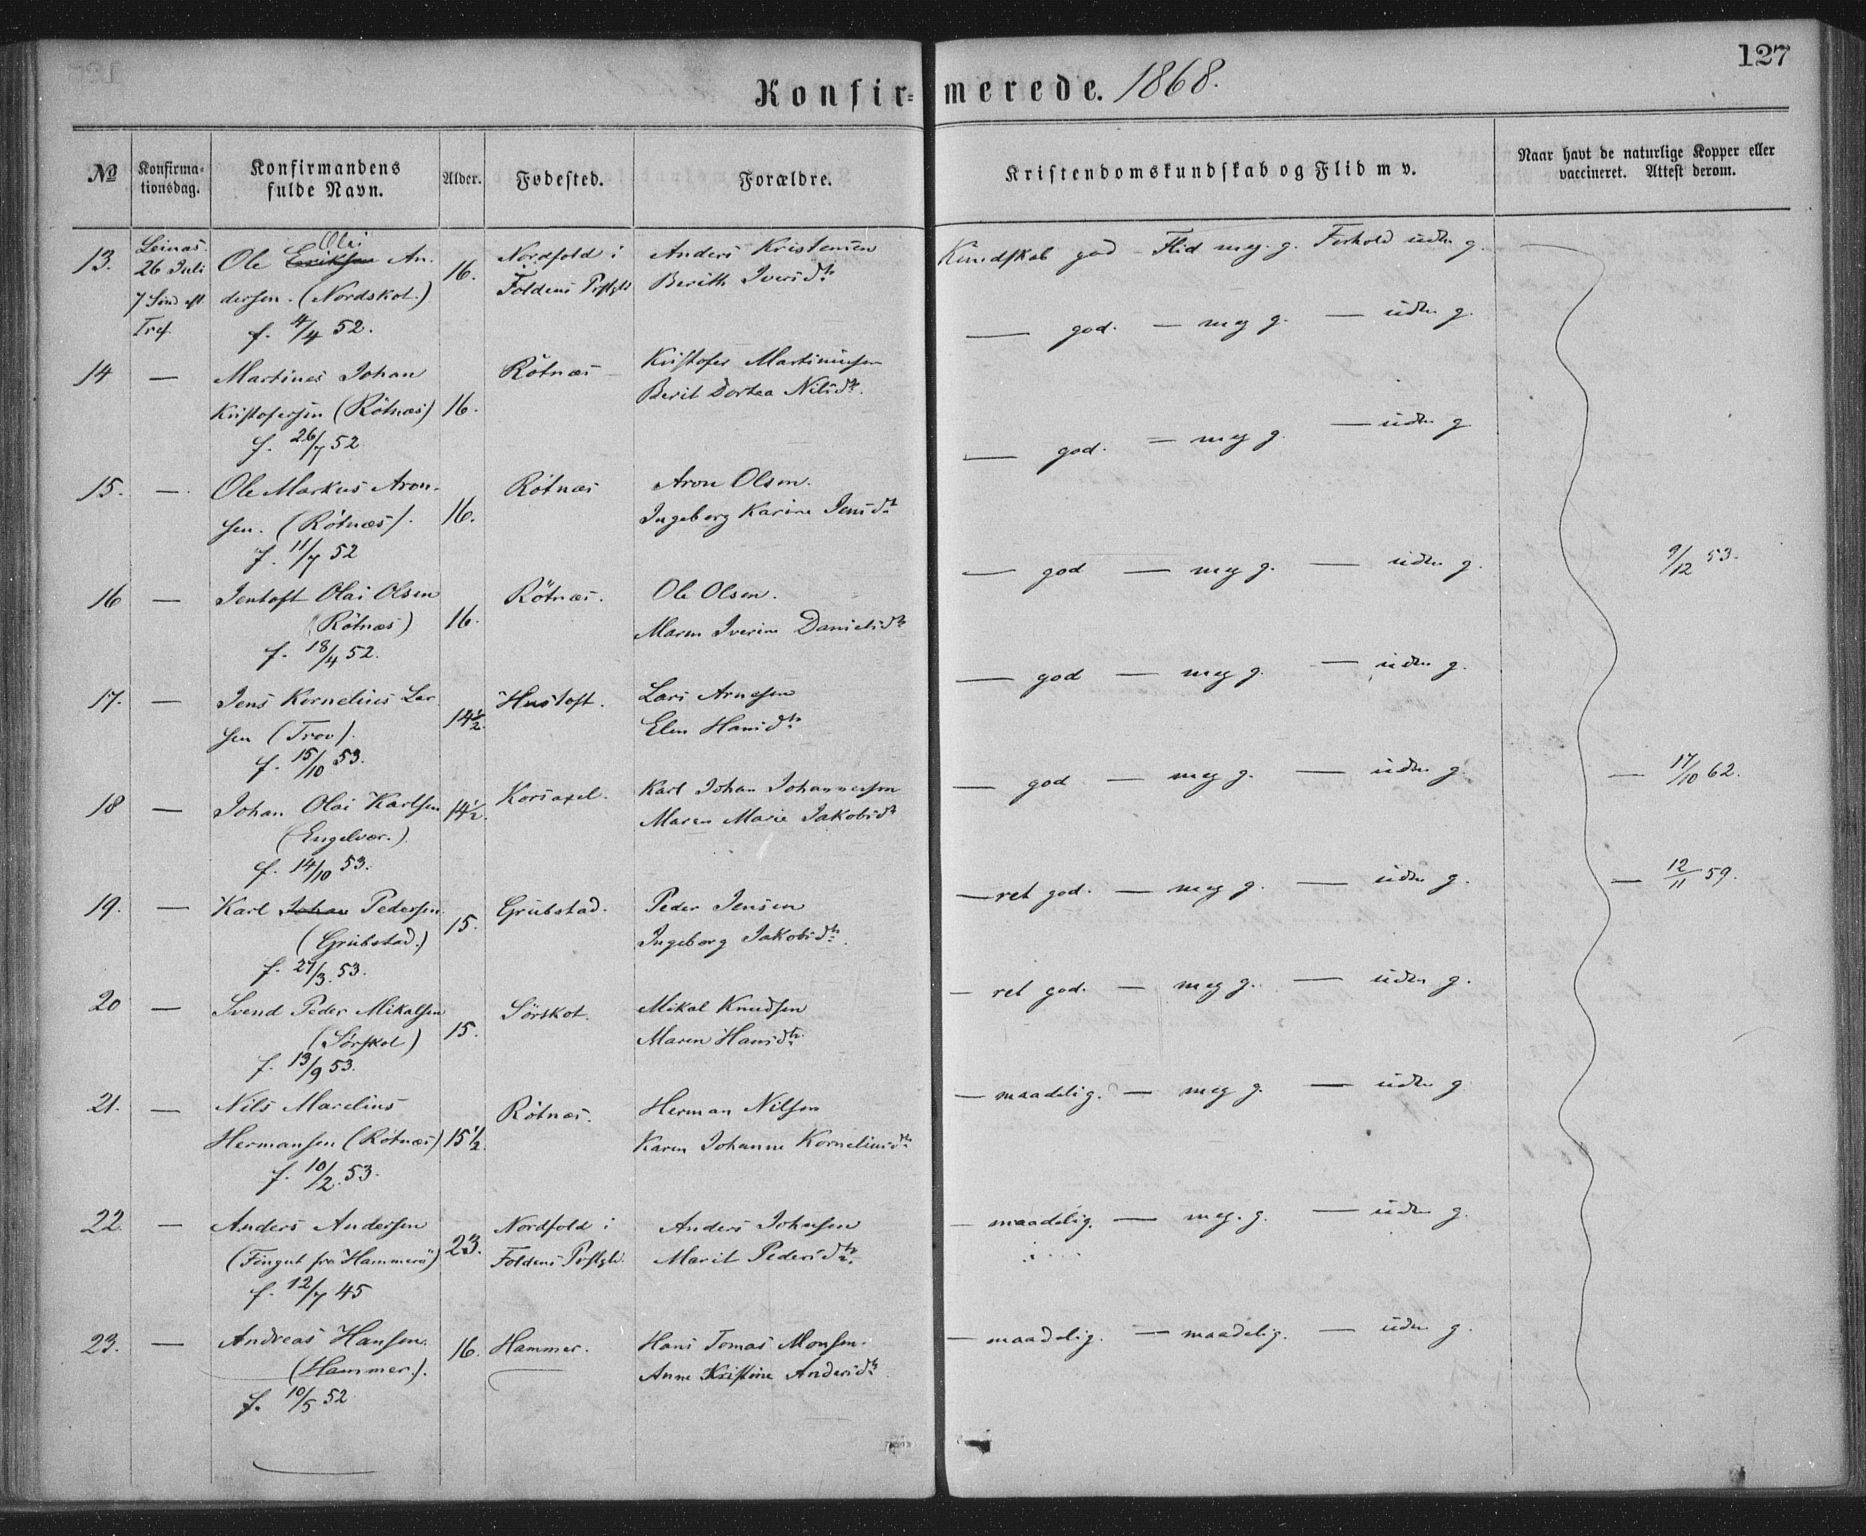 127
Konfirmerede. 1868.
№ Konfirmationsdag. Konfirmandens fulde Navn. Alder. Fødested. Forældre. Kristendomskundskab og Flid m v. Naar havt de naturlige Kopper eller vaccineret. Attest derom.
13. Leinæs. Ole Eriksen Olai An- 16. Nordfold i Anders Kristensen Kundskab god - Flid meg. g. Forhold uden g.
26 Juli dersen. (Nordskot.) Foldens Prstgld Berith Iversdtr
7 Sønd eft. Tref. f. 4/4 52.
14 — Martines Johan 16. Rötnæs Kristofer Martinusen — god. — meg g. — uden g.
Kristofersen (Rötnæs) Berit Dortea Nilsdtr.
f. 26/7 52
15. — Ole Markus Aron- 16. Rötnæs Aron Olsen. — god. — meg g. — uden g
sen. (Rötnæs). Ingeborg Karine Jensdtr
f. 11/7 52
16 — Jentoft Olai Olsen 16. Rötnæs. Ole Olsen. — god — meg g. — uden g. 9/12 53.
(Rötnæs) Maren Iverine Danielsdtr
f. 18/4 52.
17. — Jens Kornelius Lar- 14½. Hustoft. Lars Arnesen — god — meg g. — uden g.
sen (Trov). Elen Hansdtr
f. 15/10 53.
18 — Johan Olai Karlsen 14½. Korsaxel. Karl Johan Johannessen — god — meg g. — uden g. — 17/10 62.
(Engelvær.) Maren Marie Jakobsdtr
f. 14/10 53.
19. — Karl Johan Pedersen 15. Grubstad. Peder Jensen — ret god. — meg g. — uden g. — 12/11 59.
(Grubstad.) Ingeborg Jakobsdtr.
f. 27/3. 53.
20 — Svend Peder Mikalsen 15. Sörskot. Mikal Knudsen — ret god. — meg g. — uden g.
(Sörskot) Maren Hansdtr.
f. 13/9 53.
21. — Nils Marelius 15½. Rötnæs. Herman Nilsen — maadelig. — meg g. — uden g
Hermansen (Rötnæs) Karen Johanne Korneliusdtr
f. 10/2. 53.
22. — Anders Andersen 23. Nordfold i Anders Johnsen — maadelig. — meg. g. — uden g.
(Föngut fra Hammerö) Foldens Prstgld. Marit Pedersdtr.
f. 12/7 45
23. — Andreas Hansen. 16. Hammer. Hans Tomas Monsen. — maadelig. — maadelig. — uden g.
(Hammer.). Anne Kristine Andersdtr
f. 10/5 52